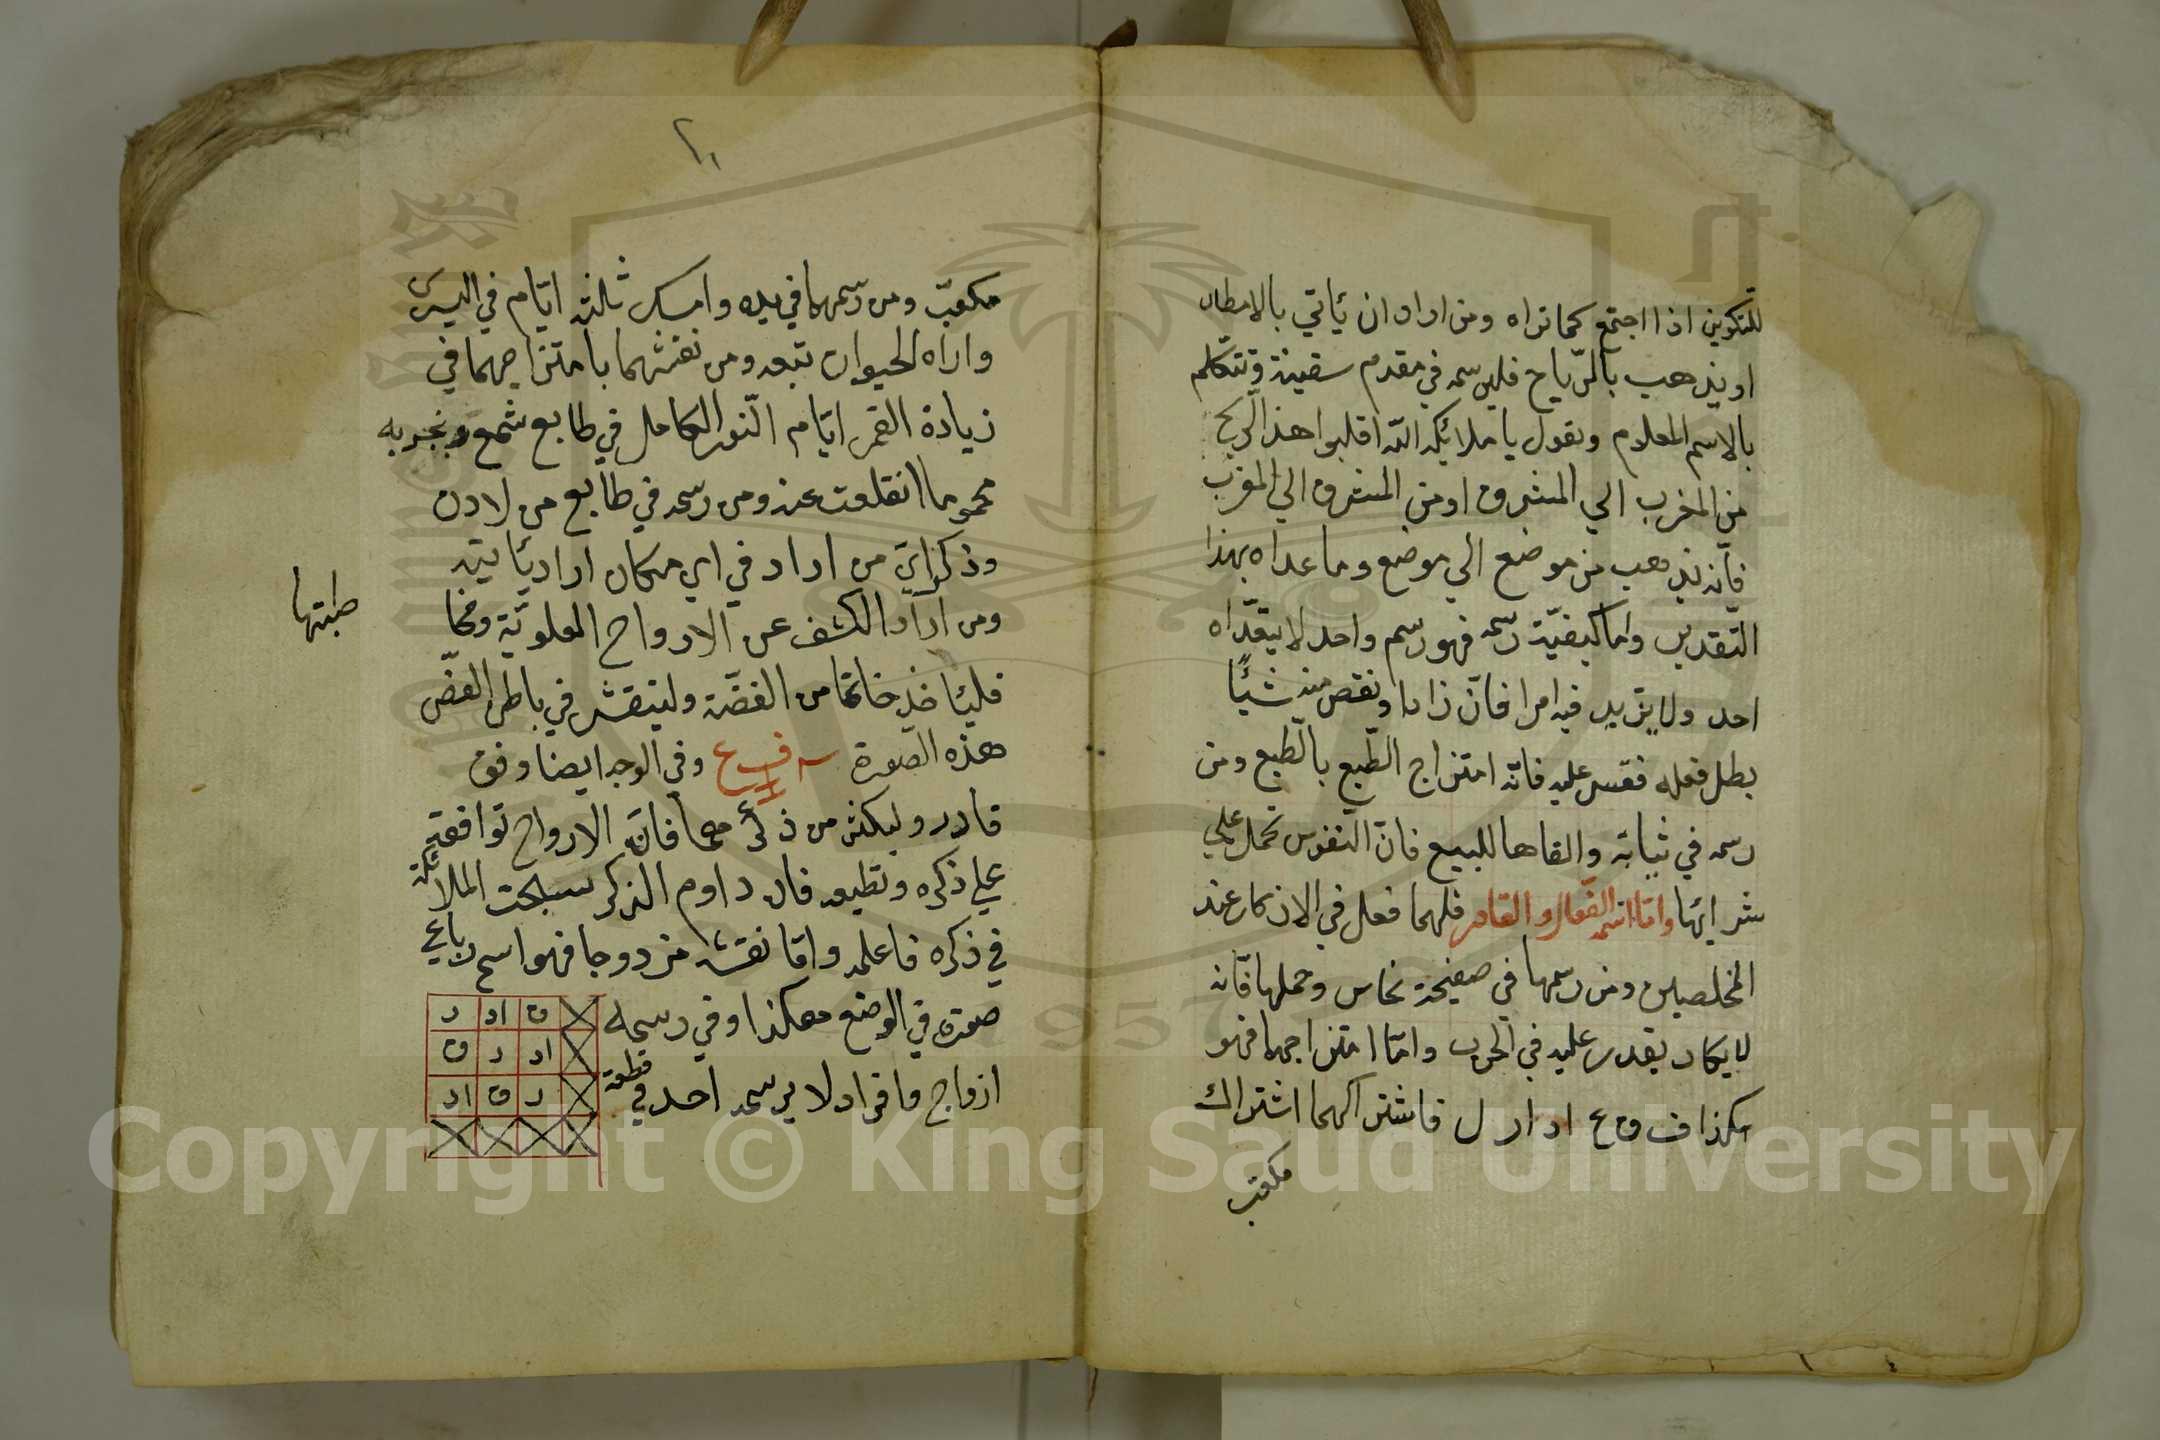 للتكوين اذا اجتمع كما تراه ومن اراد ان يأتي بالامطار
او يذهب بالرّياح فليرسمه في مقدم سفينة وتتكلم
بالاسم المعلوم ويقول يا ملائكة الله اقلبوا هذا الريح
من المغرب الي المشرق او من المشرق الي المغرب
فانّه يذهب من موضع الي موضع وما عداه بهذا
التّقدير واما كيفيّة رسمه فهو رسم واحد لا يتعدّاه
احد ولا يزيد فيه امرا فانّ زاد او نقص منه شيئًا
بطل فعله فقس عليه فانّه امتزاج الطّبع بالطّبع ومن
رسمه في ثيابة والقاها للبيع فانّ النّفوس تحمل علي
شرائها وامّا اسمه الفعّال والقادر فلهما فعل في الاذكار عند
المخلصين ومن رسمها في صفيحة نحاس وحملها فانّه
لا يكاد يقدر عليه في الحرب وامّا امتزاجهما فهو
هكذا ف ق ع ا د ا ر ل فاشتراكهما اشتراك
مكعب
٢١
مكعبّ ومن رسمهما في يده وامسك ثلثة ايّام في اليسرى
واراه الحيوان تبعه ومن نقشهما بامتزاجهما في
زيادة القمر ايّام النّور الكامل في طابع شمع وبخر به
محموما انقلعت عنه ومن رسمه في طابع من لادن
وذكر ايّ من اراد في اي مكان اراد يأتيه
ومن اراد الكشف عن الارواح العلويّة ومخا
طبتها
فليأخذ خاتما من الفضّة ولينقش في باطن الفصّ
هذه الصّورة وفي الوجه ايضا وفق
قادر وليكثر من ذكرهما فانّ الارواح توافقه
علي ذكره وتطيعه فان داوم الذكر سبحت الملائكة
في ذكره فاعلمه وامّا نقشه مزدوجا فهو اسم رباعي
صورته في الوضع هكذا وفي رسمه
ازواج وافراد لا يرسمه احد في قطعة
ق اد ر
اد ر ق
ر ق اد
Copyright © King Saud University
1957